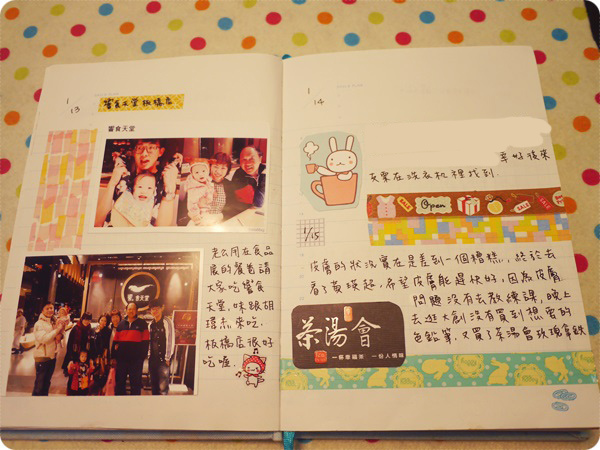 1
13
饗食天堂板橋店
饗食天堂
饗食天堂
老公用在食品
展的餐券請
大家吃饗食
天堂,味跟胡
環杰來吃.
板橋店很好
吃喔.
1
14
幸好後來
灰栗在洗衣机裡找到.
Open
SALE
1/15
皮膚的狀況實在是差到一個糟糕,終於去
看了黃瑛超,希望皮膚能趕快好,因為皮膚
問題沒有去教練課,晚上
去逛大創沒有買到想要的
色鉛筆.又買了茶湯會玫瑰拿鐵
茶湯會
一杯幸福茶 一份人情味